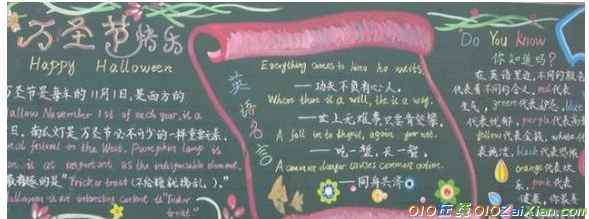 万圣节快乐
Happy Halloween
万圣节是每年的11月1日,是西方的
Hallow November 1st of each year, is a
日。南瓜灯是万圣节必不可少的一样重要元素,
nal festival in the West. Pumpkin lamp is
as important as the indispensable element.
最有趣的是"Trick or treat (不给糖就捣乱)。"
Halloween is an interesting content is "Trick or
treat"
英语名言
Everything comes to him who waits.
——功夫不负有心人。
Where there is a will, there is a way.
——世上无难事只要肯登攀
A fall into the pit, a gain in your wit.
——吃一堑,长一智。
A common danger causes common action.
——同舟共济
Do You Know
你知道吗?
在英语里边,不同的颜色
代表着不同的含义, red代表
生气, green代表妒忌, blue
代表忧郁, purple代表高贵
yellow代表金钱, white代
表纯洁, black代表恐怖
orange代表欢
乐, pink代表
健康, 你最喜
010在线010ZaiXian.com